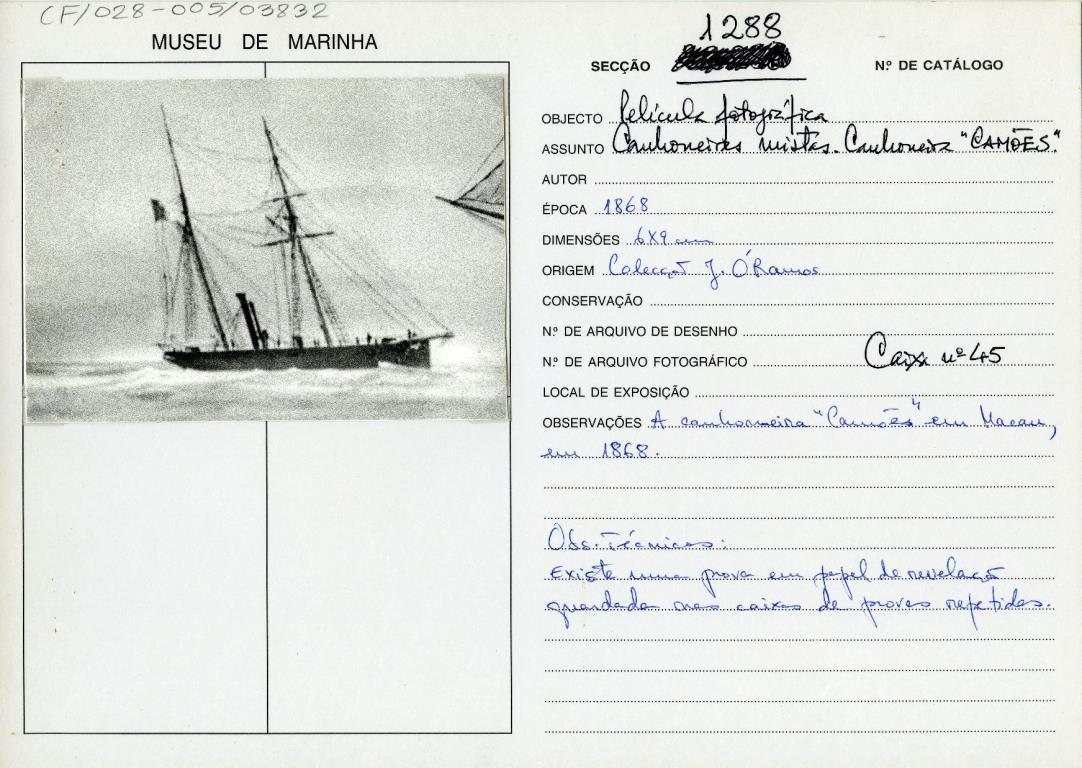 CF/028-005/03832
MUSEU DE MARINHA
1288
SECÇÃO
N.º DE CATÁLOGO
OBJECTO Película fotográfica
ASSUNTO Canhoneiras mistas. Canhoneira "CAMÕES".
AUTOR
ÉPOCA 1868
DIMENSÕES 6X9 cm
ORIGEM Colecção J. O'Ramos
CONSERVAÇÃO
N.º DE ARQUIVO DE DESENHO
N.º DE ARQUIVO FOTOGRÁFICO Caixa nº 45
LOCAL DE EXPOSIÇÃO
OBSERVAÇÕES A canhoneira "Camões" em Macau,
em 1868.
Obs. Técnicas:
Existe uma prova em papel de revelação
guardada nas caixas de provas repetidas.